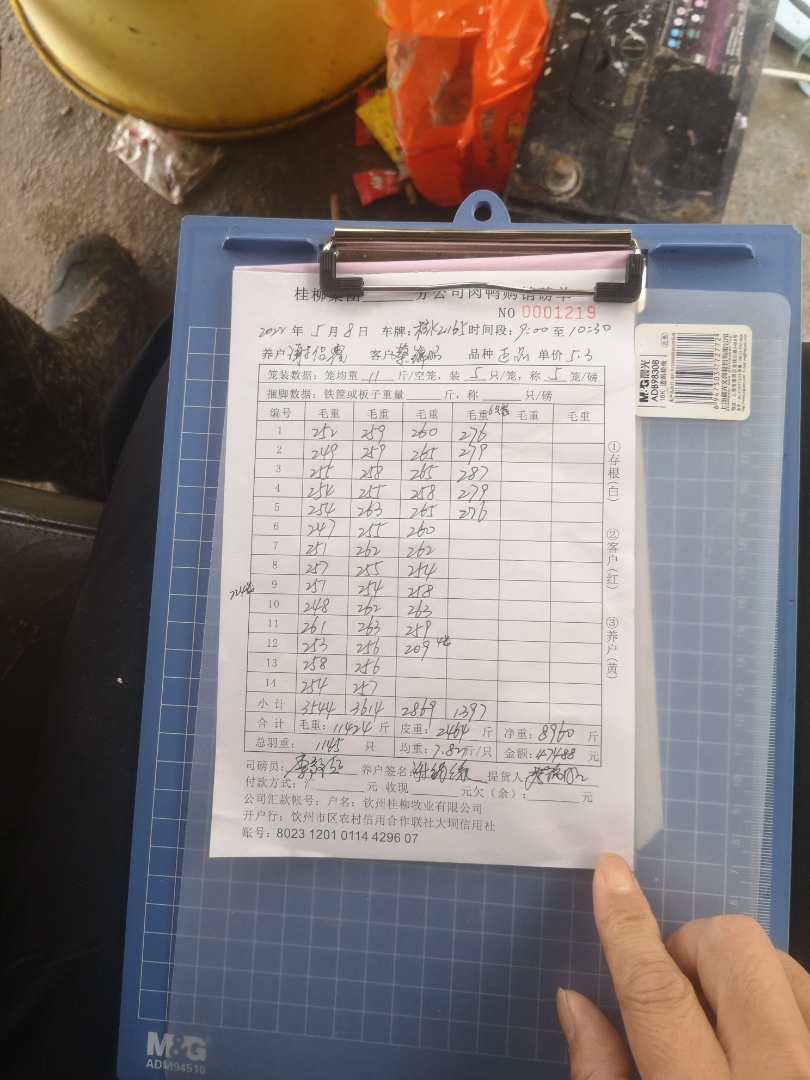 桂柳集团 分公司肉鸭购销磅单
NO 0001219
2022 年 5 月 8 日 车牌: 桂K2165 时间段: 9:00 至 10:30
养户: 客户 品种 正品 单价 5.3
笼装数据: 笼均重 11 斤/空笼, 装 5 只/笼, 称 5 笼/磅
捆脚数据: 铁筐或板子重量 斤, 称 只/磅
编号 毛重 毛重 毛重 毛重 毛重 毛重
1 252 259 260 276
2 249 259 265 279
3 255 258 265 287
4 254 255 258 279
5 254 263 265 276
6 247 255 260
7 251 262 262
8 257 255 254
9 257 254 258
10 248 262 263
11 261 263 259
12 253 256 209 4笼
13 258 256
14 254 257
小计 3544 3614 2869 1397
合计 毛重: 11424 斤 皮重: 2464 斤 净重: 8960 斤
总羽重: 1145 只 均重: 7.82 斤/只 金额: 47488 元
司磅员: 养户签名: 提货人:
付款方式: 汇 元 收现 元欠(余): 元
公司汇款帐号: 户名: 钦州桂柳牧业有限公司
开户行: 钦州市区农村信用合作联社大垌信用社
账号: 8023 1201 0114 4296 07
①存根(白)
②客户(红)
③养户(黄)
M&G 晨光
ADB98308
6947503577724
M&G
ADM94510